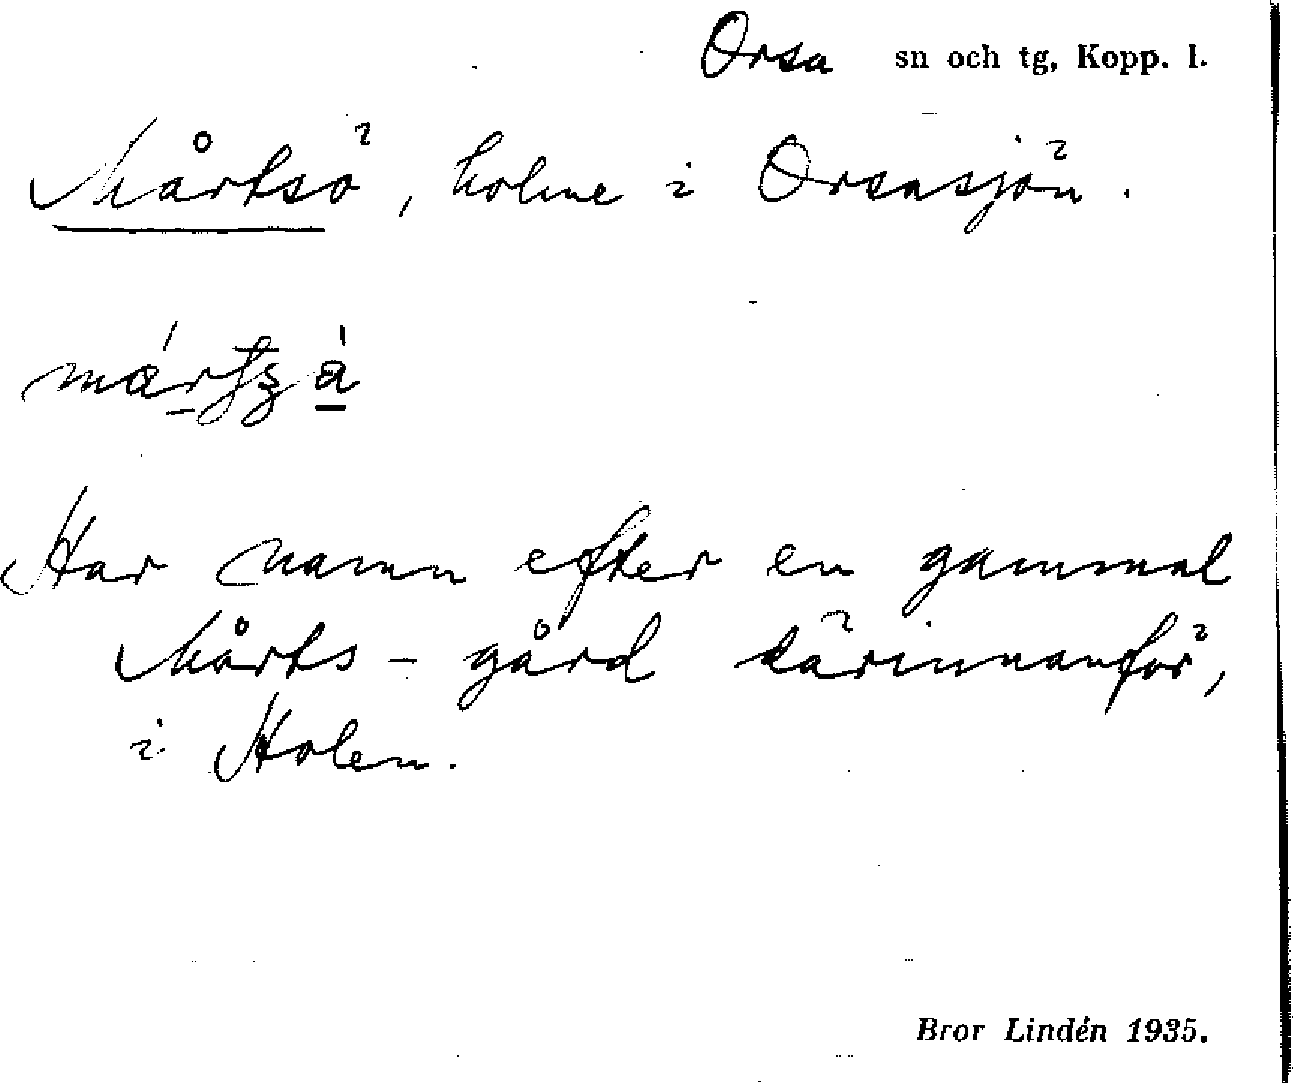 Orsa sn och tg, Kopp. l.
Mårtsö, holme i Orsasjön.
Har namn efter en gammal
Mårts-gård därinnanför,
i Holen.
Bror Lindén 1935.